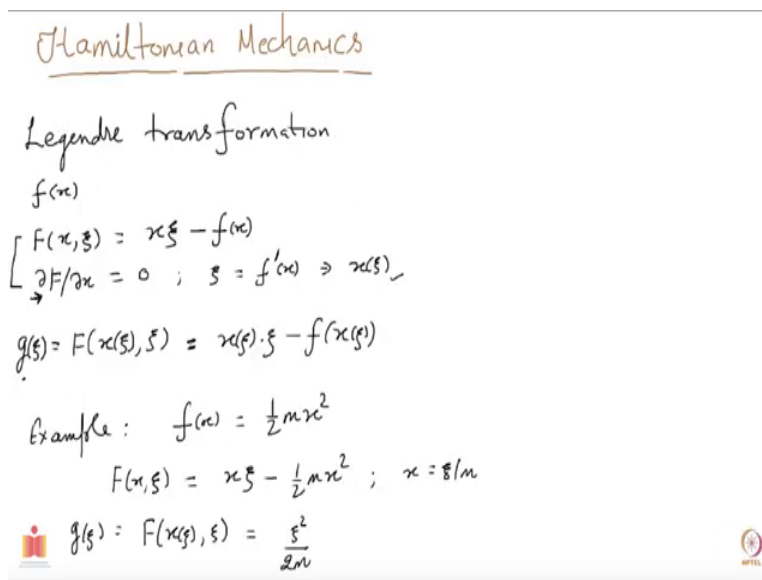 Hamiltonian Mechanics
Legendre transformation
f(x)
F(x,ξ) = xξ - f(x)
∂F/∂x = 0 ; ξ = f'(x) ⇒ x(ξ)
g(ξ) = F(x(ξ), ξ) = x(ξ)·ξ - f(x(ξ))
Example : f(x) = 1/2 mx²
F(x,ξ) = xξ - 1/2 mx² ; x = ξ/m
g(ξ) = F(x(ξ), ξ) = ξ²/2m
NPTEL